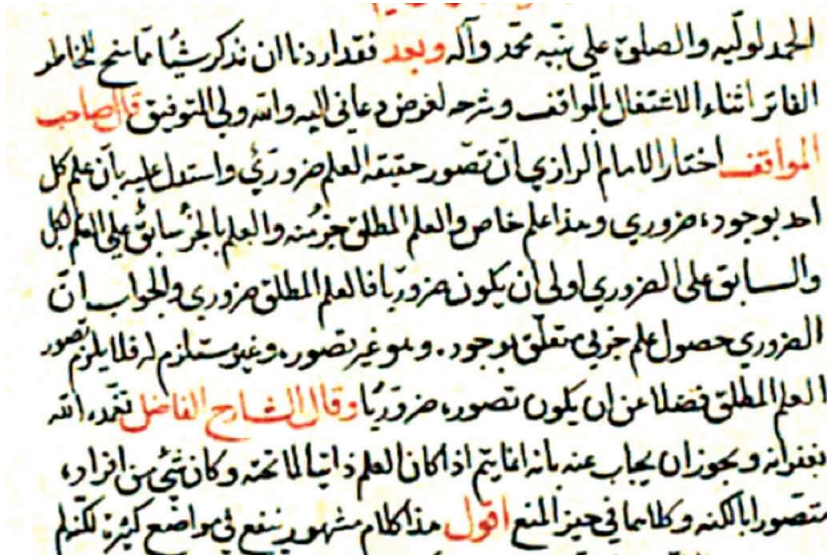 الحمد لوليه والصلوة على نبيه محمد وآله وبعد فقد اردنا ان نذكر شيئا مما سنح للخاطر
الفاتر اثناء الاشتغال بالمواقف وشرحه لغرض دعاني اليه والله ولي التوفيق قال صاحب
المواقف اختار الامام الرازي ان تصور حقيقة العلم ضروري واستدل عليه بان علم كل
احد بوجوده ضروري وهذا علم خاص والعلم المطلق جزء منه والعلم بالجزء سابق على العلم بالكل
والسابق على الضروري اولى ان يكون ضروريا فالعلم المطلق ضروري والجواب ان
الضروري حصول علم جزئي متعلق بوجوده وهو غير تصوره وغير مستلزم له فلا يلزم تصور
العلم المطلق فضلا عن ان يكون تصوره ضروريا وقال الشارح الفاضل تغمده الله
بغفرانه ويجوز ان يجاب عنه بانه انما يتم اذا كان العلم ذاتيا لما تحته وكان شيء من افراده
متصورا بالكنه وكلاهما في حيز المنع اقول هذا كلام مشهور ينفع في مواضع كثيرة لكنه لم